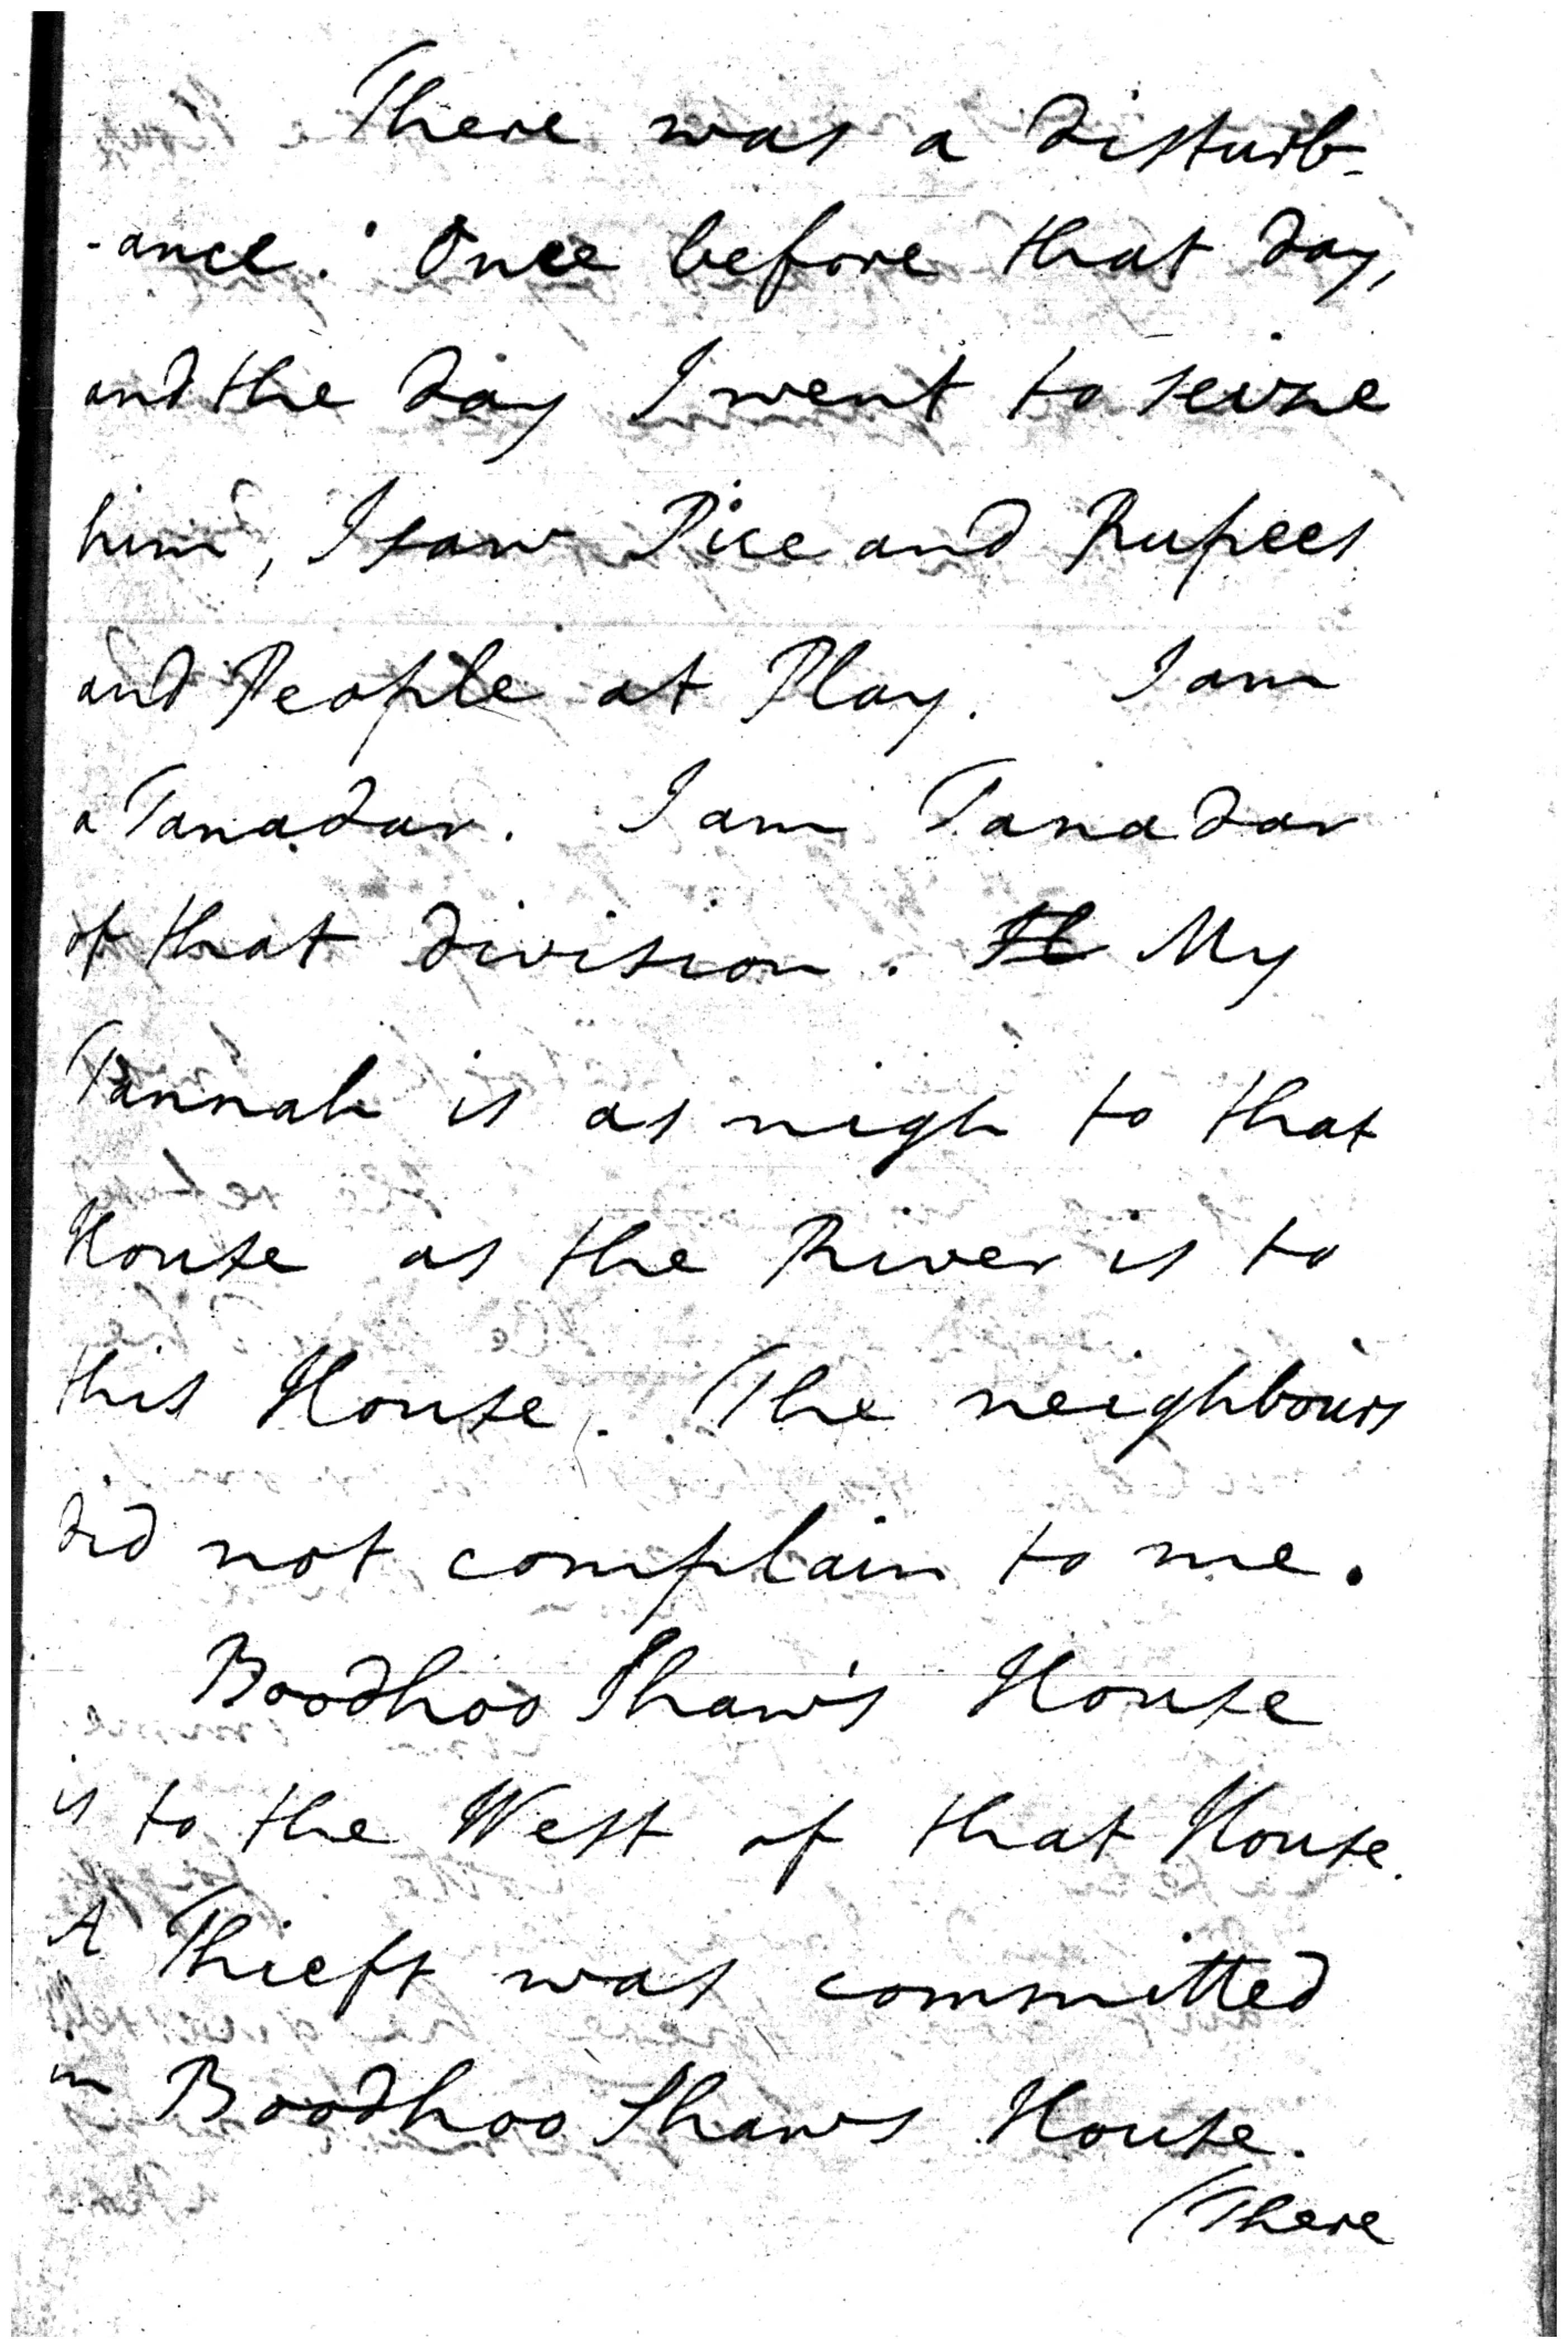 There was a disturb-
-ance. Once before that day,
and the day I went to seize
him, I saw Pice and Rupees
and People at Play. I am
a Tanadar. I am Tanadar
of that division. My
Tannah is as nigh to that
House as the River is to
this House. The neighbours
did not complain to me.
Boodhoo Shaw's House
is to the West of that House.
A Thieft was committed
in Boodhoo Shaws House.
There